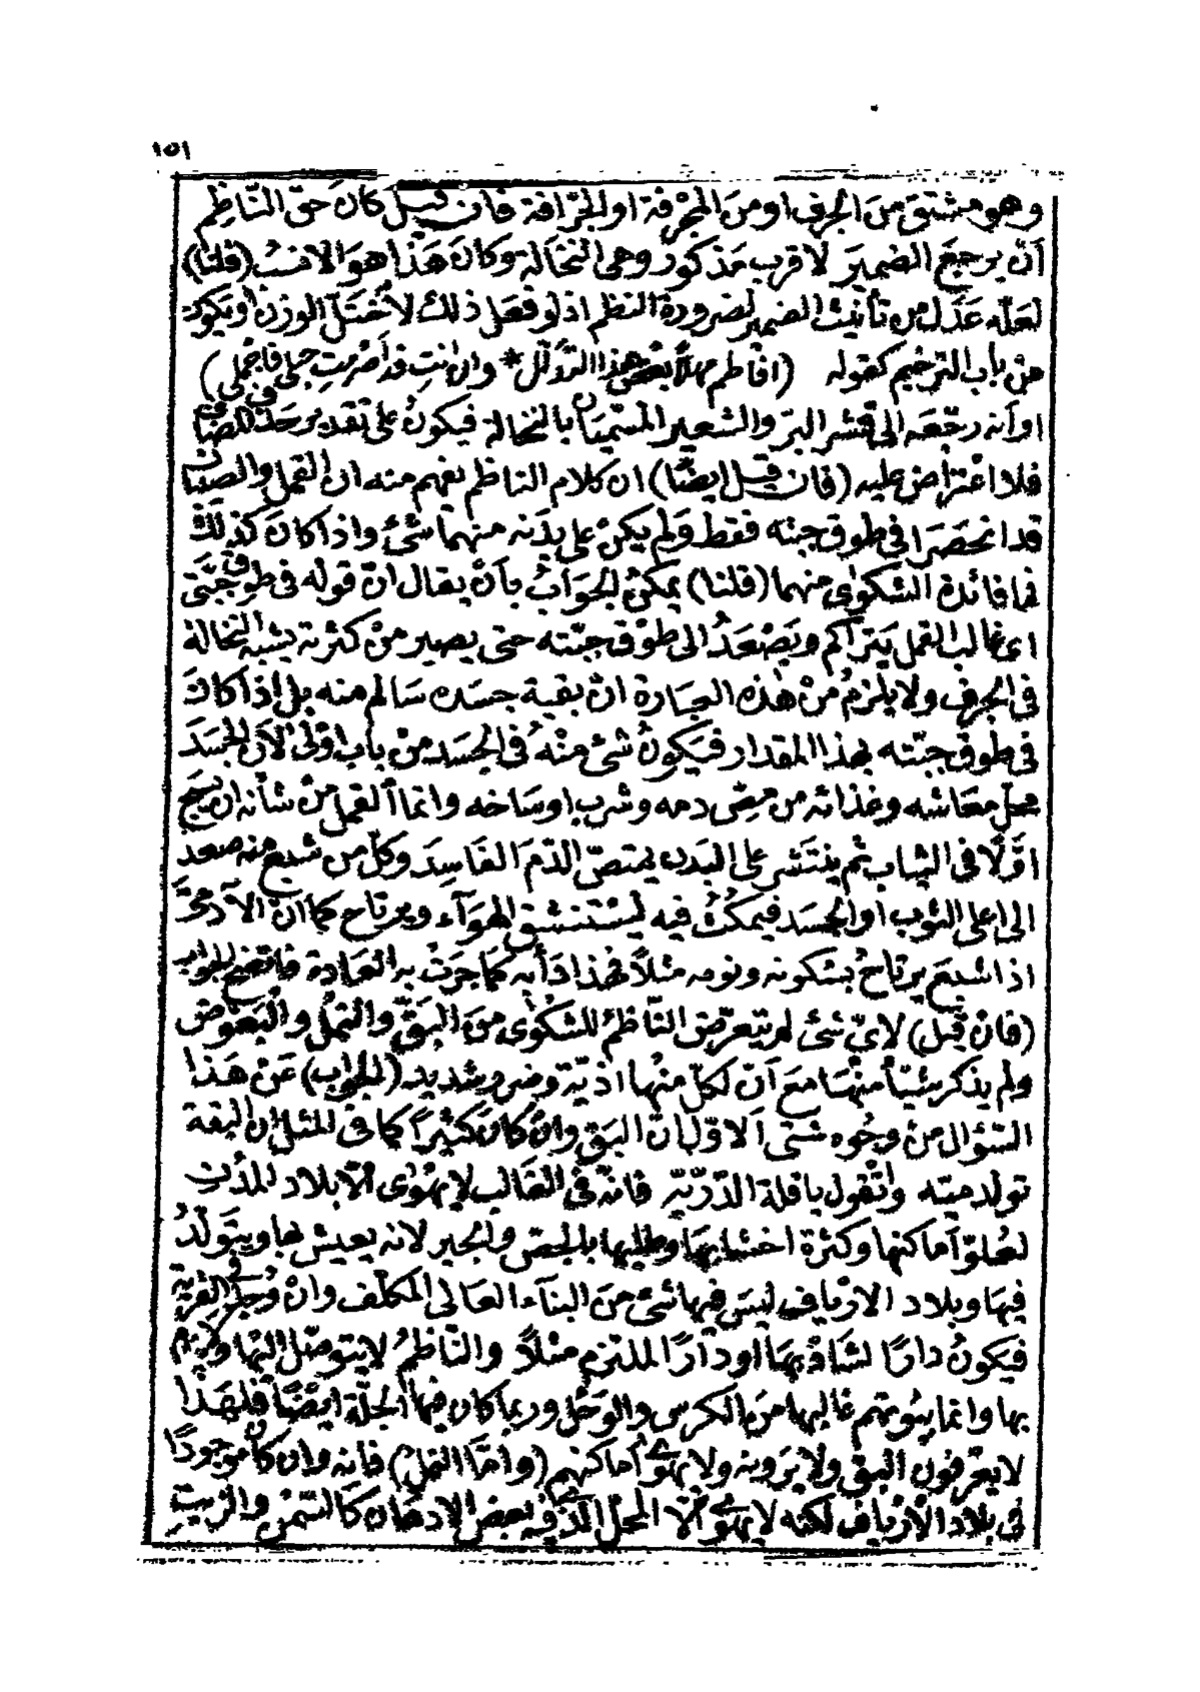 ١٥١
وهو مشتق من الجرف او من المجرفة او الجرّافة فان قيل كانَ حق النّاظِم
اَنْ يرجعَ الضميرَ لاقرب مَذكورٌ وهى النخالة وكانَ هَذا هوَ الانسبُ (قلنا)
لعَلّه عَدَلَ من تأنيث الضمير لضرورة النظم اذ لو فعَل ذلك لاختَلّ الوزن أو يكون
من باب الترخيم كقوله (افاطم مهلاً بعض هذا التدلّل * وان كنتِ قد أضرمتِ حبلى فاجملى)
او اَنه رجّعه الى قشر البرّ والشعير المسمّيان بالنخالة فيكونُ على تقدير حَذف المضاف
فلا اعْتراض عليه (فان قيل ايضًا) ان كلام الناظم يفهم منه ان القمل والصيبان
قد انحَصَرَا فى طوق جبته فقط وَلم يكنْ على بدَنه منهما شئ واذا كانَ كذلكَ
فما فائدة الشكوٰى منهما (قلنا) يمكنُ الجوَابُ باَنْ يقال انّ قوله فى طوق جبَّتى
اى غالب القمل يَتراكم ويَصْعَدُ الى طوْق جبّته حتى يصير منْ كثرته يشبه النخالة
فى الجرف ولا يلزمُ منْ هٰذه العبَارة انّ بقية جسَده سَالم منه بل اذا كانَ
فى طوق جبّته بهذا المقدار فيَكونُ شئ منْهُ فى الجسَد منْ باب اوْلى لاَنّ الجسَدَ
محل معَاشه وغذائه من مصّ دمه وشرب اوسَاخه وانما القمل منْ شأنه ان يسيح
اوّلًا فى الثياب ثم ينتَشر على البدَن يمتصّ الدّمَ الفَاسِدَ وكلّ من شبع منه صعد
الى اعلى الثوب او الجسَد فيمكثُ فيه ليَسْتنشق الهوَآء ويرتاح كما انّ الآدمىّ
اذا شبعَ يرتاحُ بسكونه ونومه مثلاً فهذا دَأبه كمَا جرَتْ به العَادة فاتضح الجواب
(فانْ قيل) لاىّ شئ لم يتعرّض النّاظمُ للشكْوٰى منَ البَقّ والنملُ والبَعوض
ولم يذكر شيئاً منهَا معَ اَنّ لكلّ منهَا اذيّة وضرر شديد (الجواب) عَنْ هَذا
السّؤال منْ وجُوه شتى الاوّل انّ البَق وانْ كانَ كثيرًا كما فى المثل ان البقة
تولد ميّه وتقول يا قلة الذّرّيّه فانّه فى الغَالب لا يَهْوٰى الّا بلاد المدُن
لعُلوّ اَماكنها وكثرة اخشابهَا وطليها بالجصّ والجير لانه يعيش بها ويتَولّدُ
فيهَا وبلاد الارْياف ليسَ فيها شئ منَ البنآء العَالى المكلّف وانْ وُجدَ فى القرية
فيكونُ دارًا لشَادّ بهَا او دَارًا للملتزم مثلاً والنّاظمُ لا يتوصّل اليْها
بها وانما بيُوتهم غالبها منَ الكرس والوَحْل وربما كان فيها الجلّة ايضًا فلهَذا
لا يعْرفون البقّ ولا يرَونه ولا يهْوى اَماكنهم (واَمّا النملُ) فانه وان كانَ موجودًا
فى بلاد الاَرْياف لكنه لا يهْوى الّا المحلّ الذّى فيه بعض الادهَان كالسّمنْ والزّيت